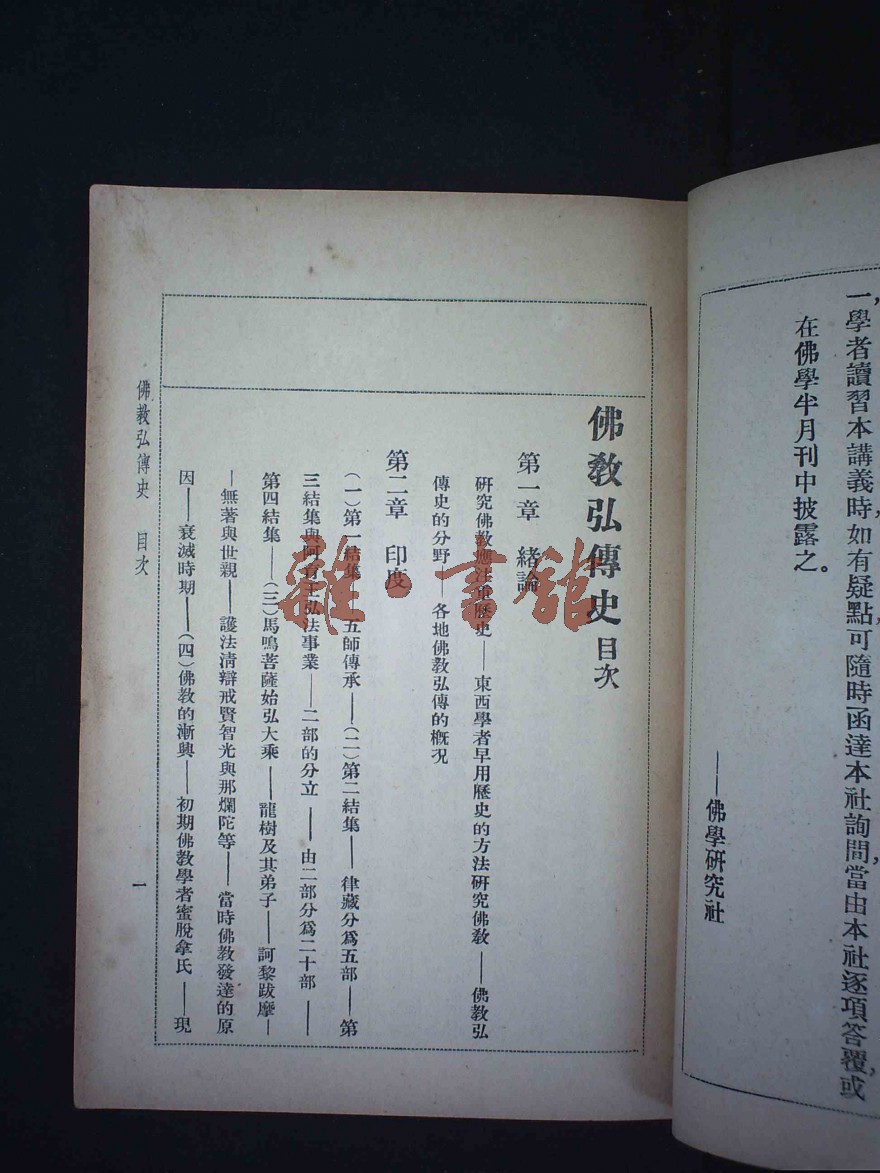 一、學者讀習本講義時，如有疑點，可隨時函達本社詢問，當由本社逐項答覆，或
在佛學半月刊中披露之。
——佛學研究社
佛教弘傳史目次
第一章　緒論
研究佛教應注重歷史——東西學者早用歷史的方法研究佛教——佛教弘
傳史的分野——各地佛教弘傳的概況
第二章　印度
(一)第一結集——五師傳承——(二)第二結集——律藏分爲五部——第
三結集與阿育王弘法事業——二部的分立——由二部分爲二十部——
第四結集——(三)馬鳴菩薩始弘大乘——龍樹及其弟子——訶黎跋摩—
—無著與世親——護法清辯戒賢智光與那爛陀等——當時佛教發達的原
因——衰滅時期——(四)佛教的漸興——初期佛教學者蜜脫拿氏——現
佛教弘傳史　目次
一
雜·書館